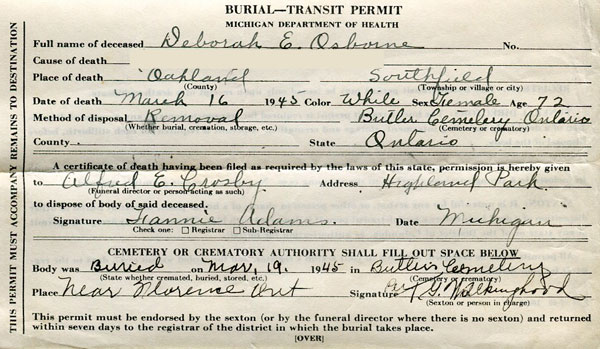 BURIAL—TRANSIT PERMIT
MICHIGAN DEPARTMENT OF HEALTH
Full name of deceased Deborah E. Osborne No.
Cause of death
Place of death Oakland Southfield
(County) (Township or village or city)
Date of death March 16 1945 Color White Sex Female Age 72
Method of disposal Removal Butler Cemetery Ontario
(Whether burial, cremation, storage, etc.) (Cemetery or crematory)
County State Ontario
A certificate of death having been filed as required by the laws of this state, permission is hereby given
to Alfred E. Crosby Address Highland Park
(Funeral director or person acting as such)
to dispose of body of said deceased.
Signature Fannie Adams. Date Michigan
Check one: Registrar Sub-Registrar
CEMETERY OR CREMATORY AUTHORITY SHALL FILL OUT SPACE BELOW
Body was Buried on Mar, 19. 1945 in Butler's Cemetery
(State whether cremated, buried, stored, etc.) (Cemetery or crematory)
Place Near Florence Ont Signature
(Sexton or person in charge)
This permit must be endorsed by the sexton (or by the funeral director where there is no sexton) and returned
within seven days to the registrar of the district in which the burial takes place.
[OVER]
THIS PERMIT MUST ACCOMPANY REMAINS TO DESTINATION